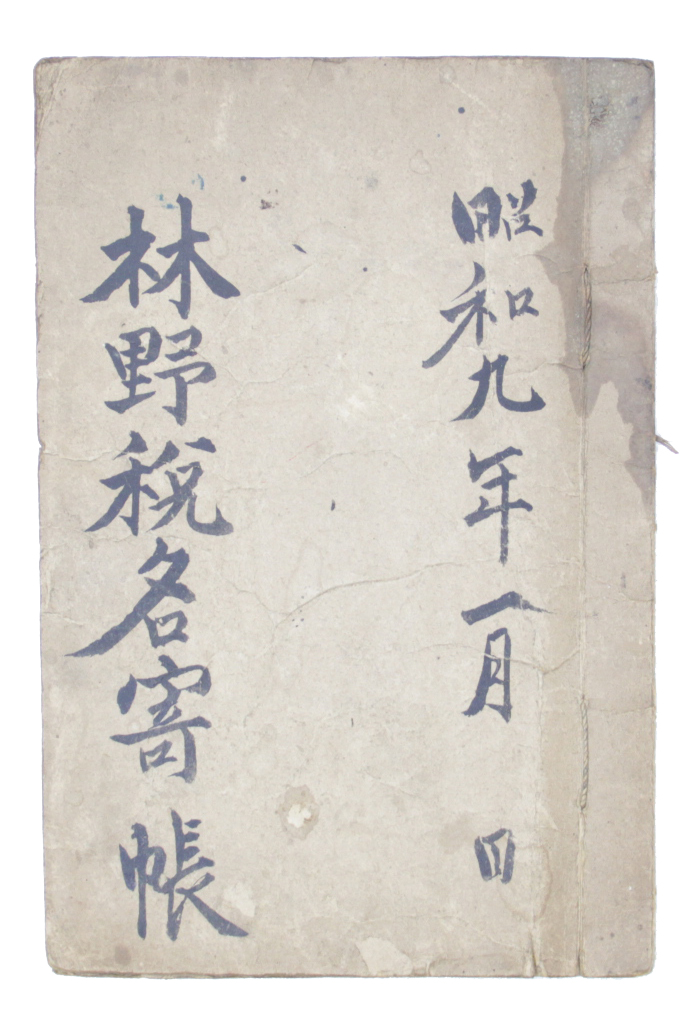 昭和九年一月 日
林野稅名寄帳